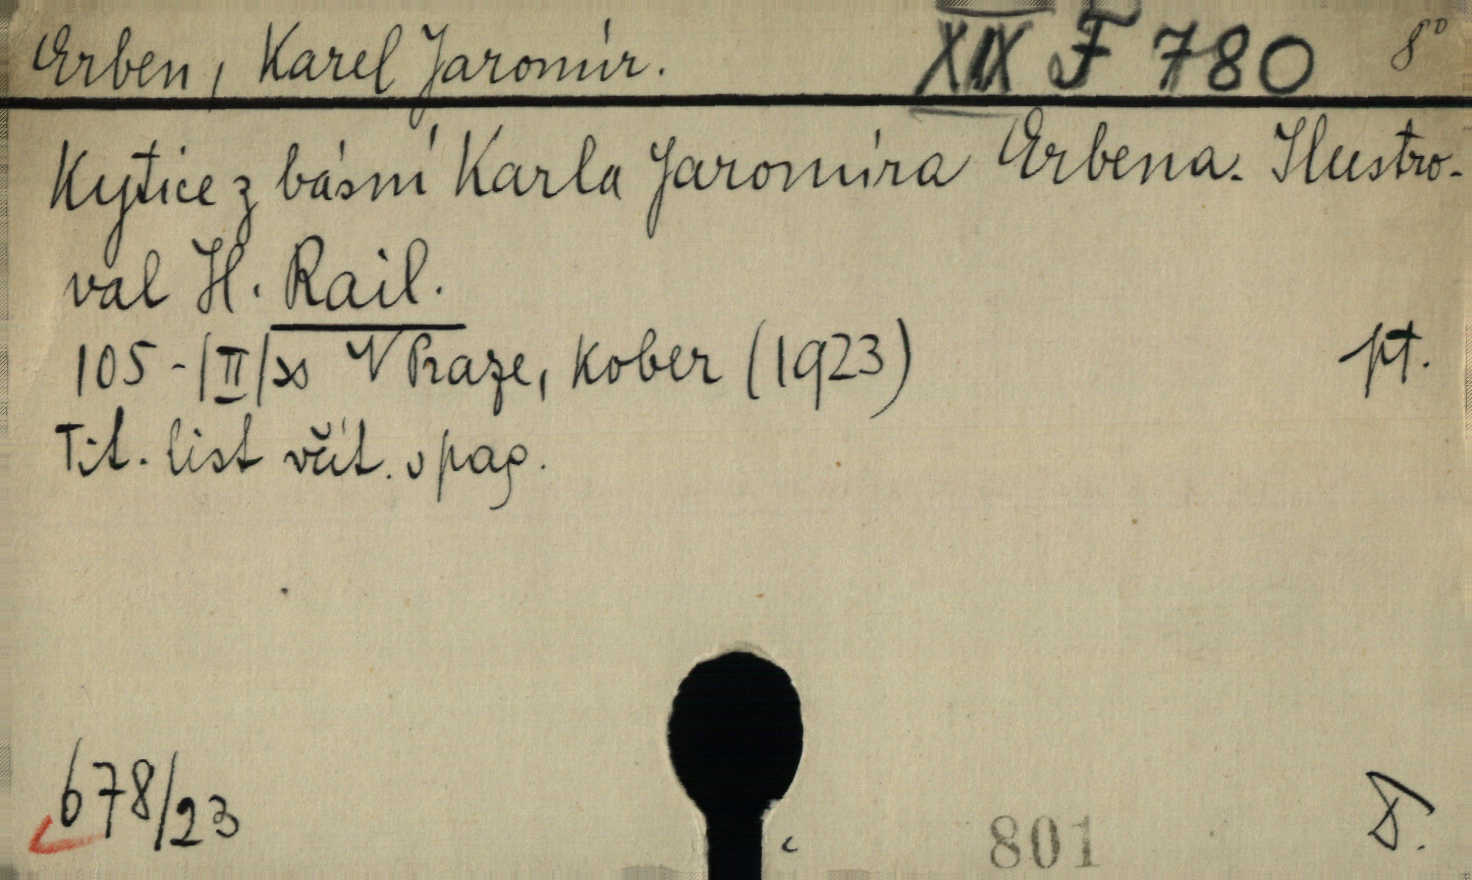 Erben, Karel Jaromír. XIX F 780 8°
Kytice z básní Karla Jaromíra Erbena. Ilustro-
val H. Rail.
105-|II| ss V Praze, Kober (1923) pt.
Tit. list včít. v pag.
678/23
801